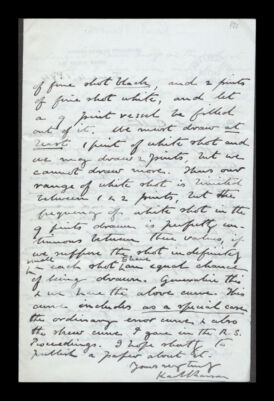 of fine shot black, and 2 pints
of fine shot white, and let
a 9 pint vessel be filled
out of it. We must draw at
least 1 pint of white shot and
we may draw 2 pints, but we
cannot draw more. Thus our
range of white shot is limited
between 1 & 2 pints, but the
frequency of white shot in the
9 pints drawn is perfectly con-
tinuous between these values, if
we suppose the shot indefinitely
small & each shot to have an equal chance
of being drawn. Generalise this
& we have the above curve. This
curve includes as a special case
the ordinary error curve & also
the skew curve I gave in the R. S.
Proceedings. I hope shortly to
publish a paper about it.
Yours very truly
Karl Pearson